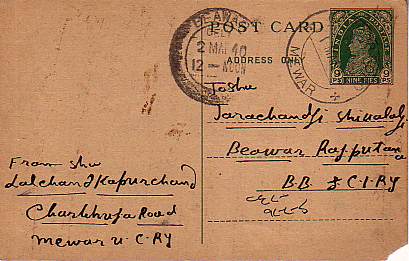 POST CARD
ADDRESS ONLY
BEAWAR
2 MAR 40
12 - NOON
MEWAR
NINE PIES
To Shu
Tarachandji
Beawar Rajputana
B.B. & C.I. RY
From Shu
Lalchand Kapurchand
Charbhuja Road
Mewar U. C. RY